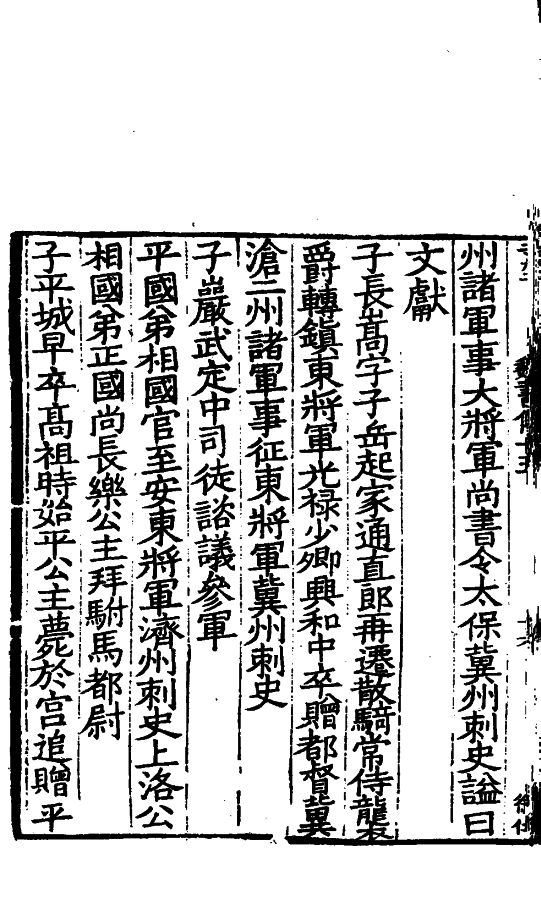 州諸軍事大將軍尚書令太保冀州刺史謚曰
文獻
子長嵩字子岳起家通直郎再遷散騎常侍襲
爵轉鎮東將軍光祿少卿興和中卒贈都督冀
滄二州諸軍事征東將軍冀州刺史
子巖武定中司徒諮議參軍
平國弟相國官至安東將軍濟州刺史上洛公
相國弟正國尚長樂公主拜駙馬都尉
子平城早卒高祖時始平公主薨於宮追贈平